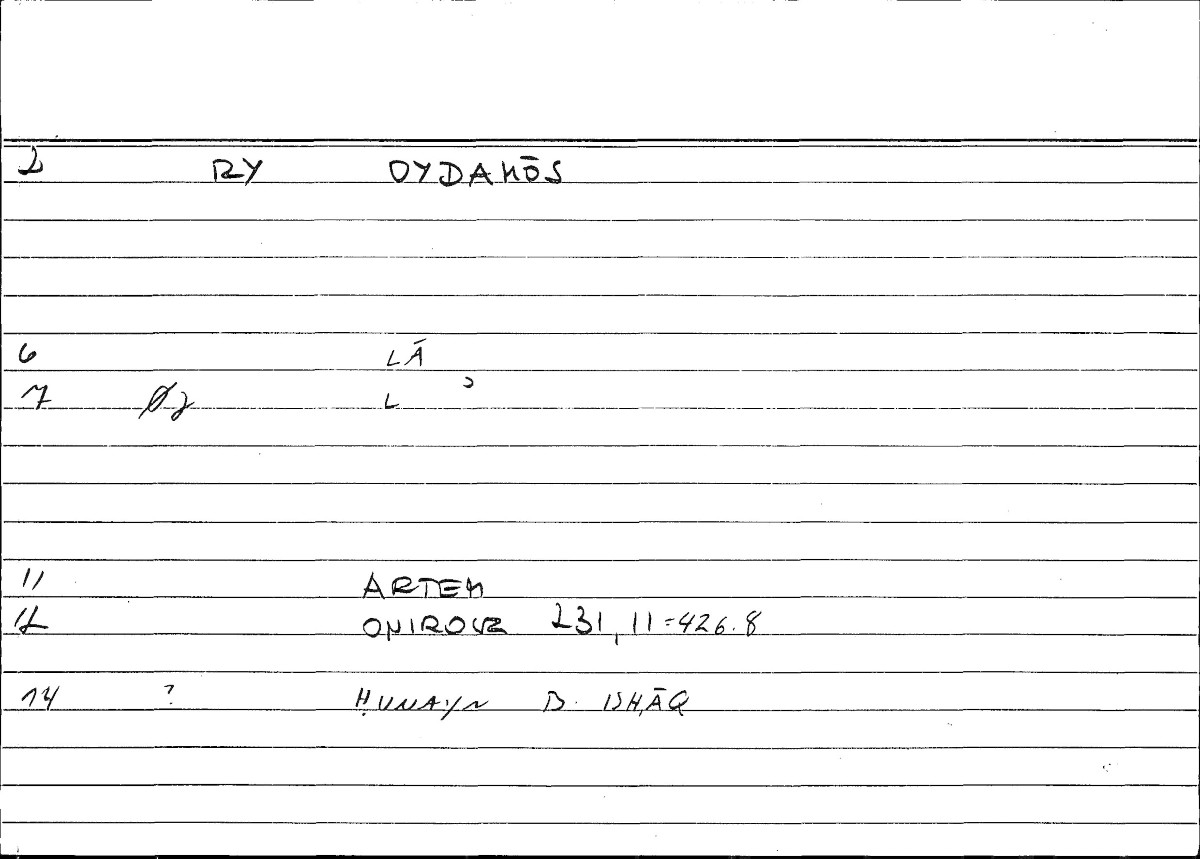 2 RY OYDAMŌS
6 LĀ
7 Ø2 L ʾ
11 ARTEM
12 ONIROCR 231,11=426.8
14 ? ḤUNAYN B. ISḤĀQ